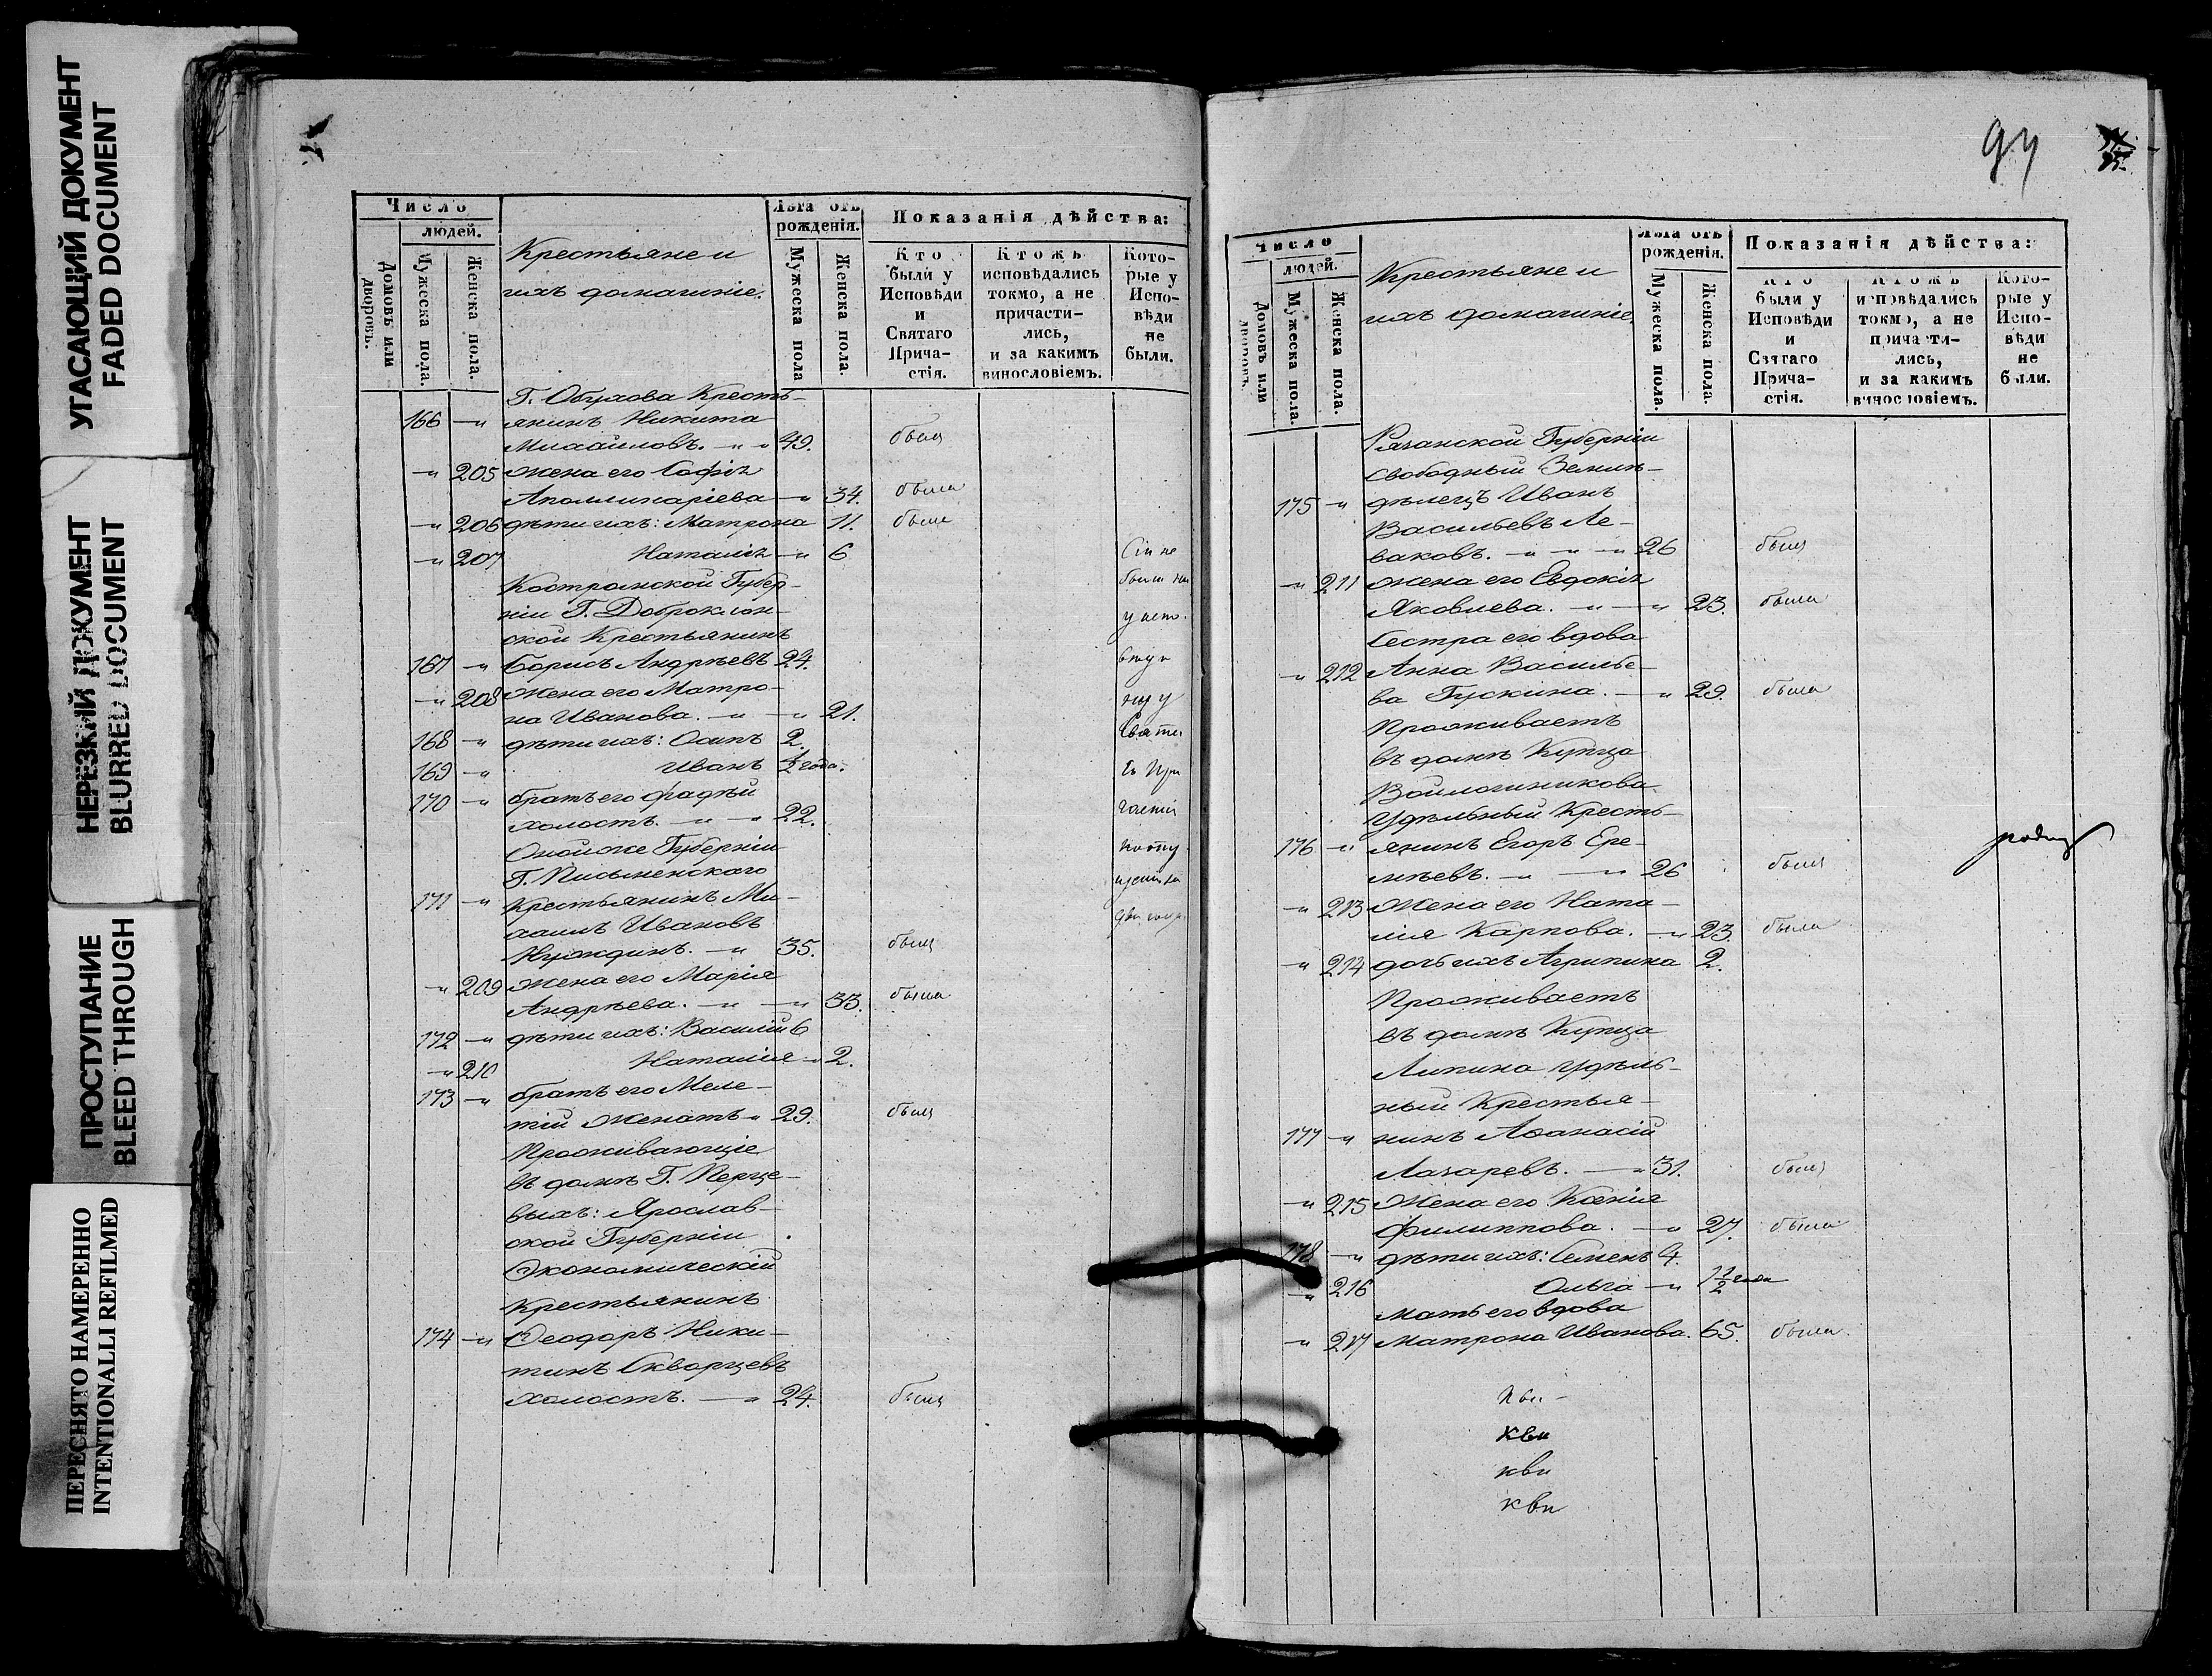 УГАСАЮЩИЙ ДОКУМЕНТ
FADED DOCUMENT
НЕРЕЗКИЙ ДОКУМЕНТ
BLURRED DOCUMENT
ПРОСТУПАНИЕ
BLEED THROUGH
ПЕРЕСНЯТО НАМЕРЕННО
INTENTIONALLI REFILMED
Число
людей.
Домовъ или дворовъ.
Мужеска пола.
Женска пола.
Крестьяне и
ихъ домашніе.
Лѣта отъ
рожденія.
Мужеска пола
Женска пола.
Показанія дѣйства:
Кто
были у
Исповѣди
и
Святаго
Прича-
стія.
Ктожъ
исповѣдались
токмо, а не
причасти-
лись,
и за какимъ
винословіемъ.
Кото-
рые у
Испо-
вѣди
не
были.
Г. Обухова Кресть-
166 -"- янинъ Никита
Михайловъ. -"-" 49. былъ
-"- 205 жена его Софія
Аполлинаріева -"- 34. была
-"- 206 дѣти ихъ: Матрона 11. была
-"- 207 Наталія -"- 6 Сіи не
Костромской Губер- были ни
ніи Г. Доброклон- у испо-
ской Крестьянинъ
167 -"- Борисъ Андреевъ 24.
-"- 208 жена его Матро-
на Иванова. -"- -"- 21. ни у
168 -"- дѣти ихъ: Осипъ 2. Святa
169 -"- Иванъ ½ года. го При
170 -"- братъ его Фадѣй частія
холостъ. -"- -"- 22.
Оной же Губерніи
Г. Письменскаго
171 -"- Крестьянинъ Ми-
хаилъ Ивановъ
Нуждинъ. -"- 35. былъ
-"- 209 жена его Марія
Андреева. -"- -"- 33. была
172 -"- дѣти ихъ: Василій 6
-"- 210 Наталія -"- 2.
173 -"- братъ его Меле-
тій женатъ -"- 29. былъ
Проживающіе
въ домѣ Г. Перце-
выхъ: Ярослав-
ской Губерніи
Экономическій
Крестьянинъ
174 -"- Ѳеодоръ Ники-
тинъ Скворцевъ
холостъ. -"- 24. былъ
97
Число
людей.
Домовъ или дворовъ.
Мужеска пола.
Женска пола.
Крестьяне и
ихъ домашніе.
Лѣта отъ
рожденія.
Мужеска пола.
Женска пола.
Показанія дѣйства:
Кто
были у
Исповѣди
и
Святаго
Прича-
стія.
Ктожъ
исповѣдались
токмо, а не
причасти-
лись,
и за какимъ
винословіемъ.
Кото-
рые у
Испо-
вѣди
не
были.
Рязанской Губерніи
Свободный Земли-
175 -"- дѣлецъ Иванъ
Васильевъ Ле-
ваковъ. -"- -"- -"- 26 былъ
-"- 211 жена его Евдокія
Яковлева. -"- -"- 23. была
Сестра его вдова
-"- 212 Анна Василье-
ва Гускина. -"- 29. была
Проживаетъ
въ домѣ Купца
Войлошникова
Удѣльный Кресть-
176 -"- янинъ Егоръ Ере-
мѣевъ. -"- -"- 26 былъ
-"- 213 жена его Ната-
лія Карпова. -"- 23. была
-"- 214 дочь ихъ Агрипина 2.
Проживаетъ
въ домѣ Купца
Липина Удѣль-
ный Крестья-
177 -"- нинъ Аѳанасій
Лазаревъ. -"- 31. былъ
-"- 215 жена его Ксенія
Филиппова. -"- 27. была
178 -"- дѣти ихъ: Семенъ 4.
-"- 216 Ольга -"- 1½ года
Мать его вдова
-"- 217 Матрона Иванова. 65. была